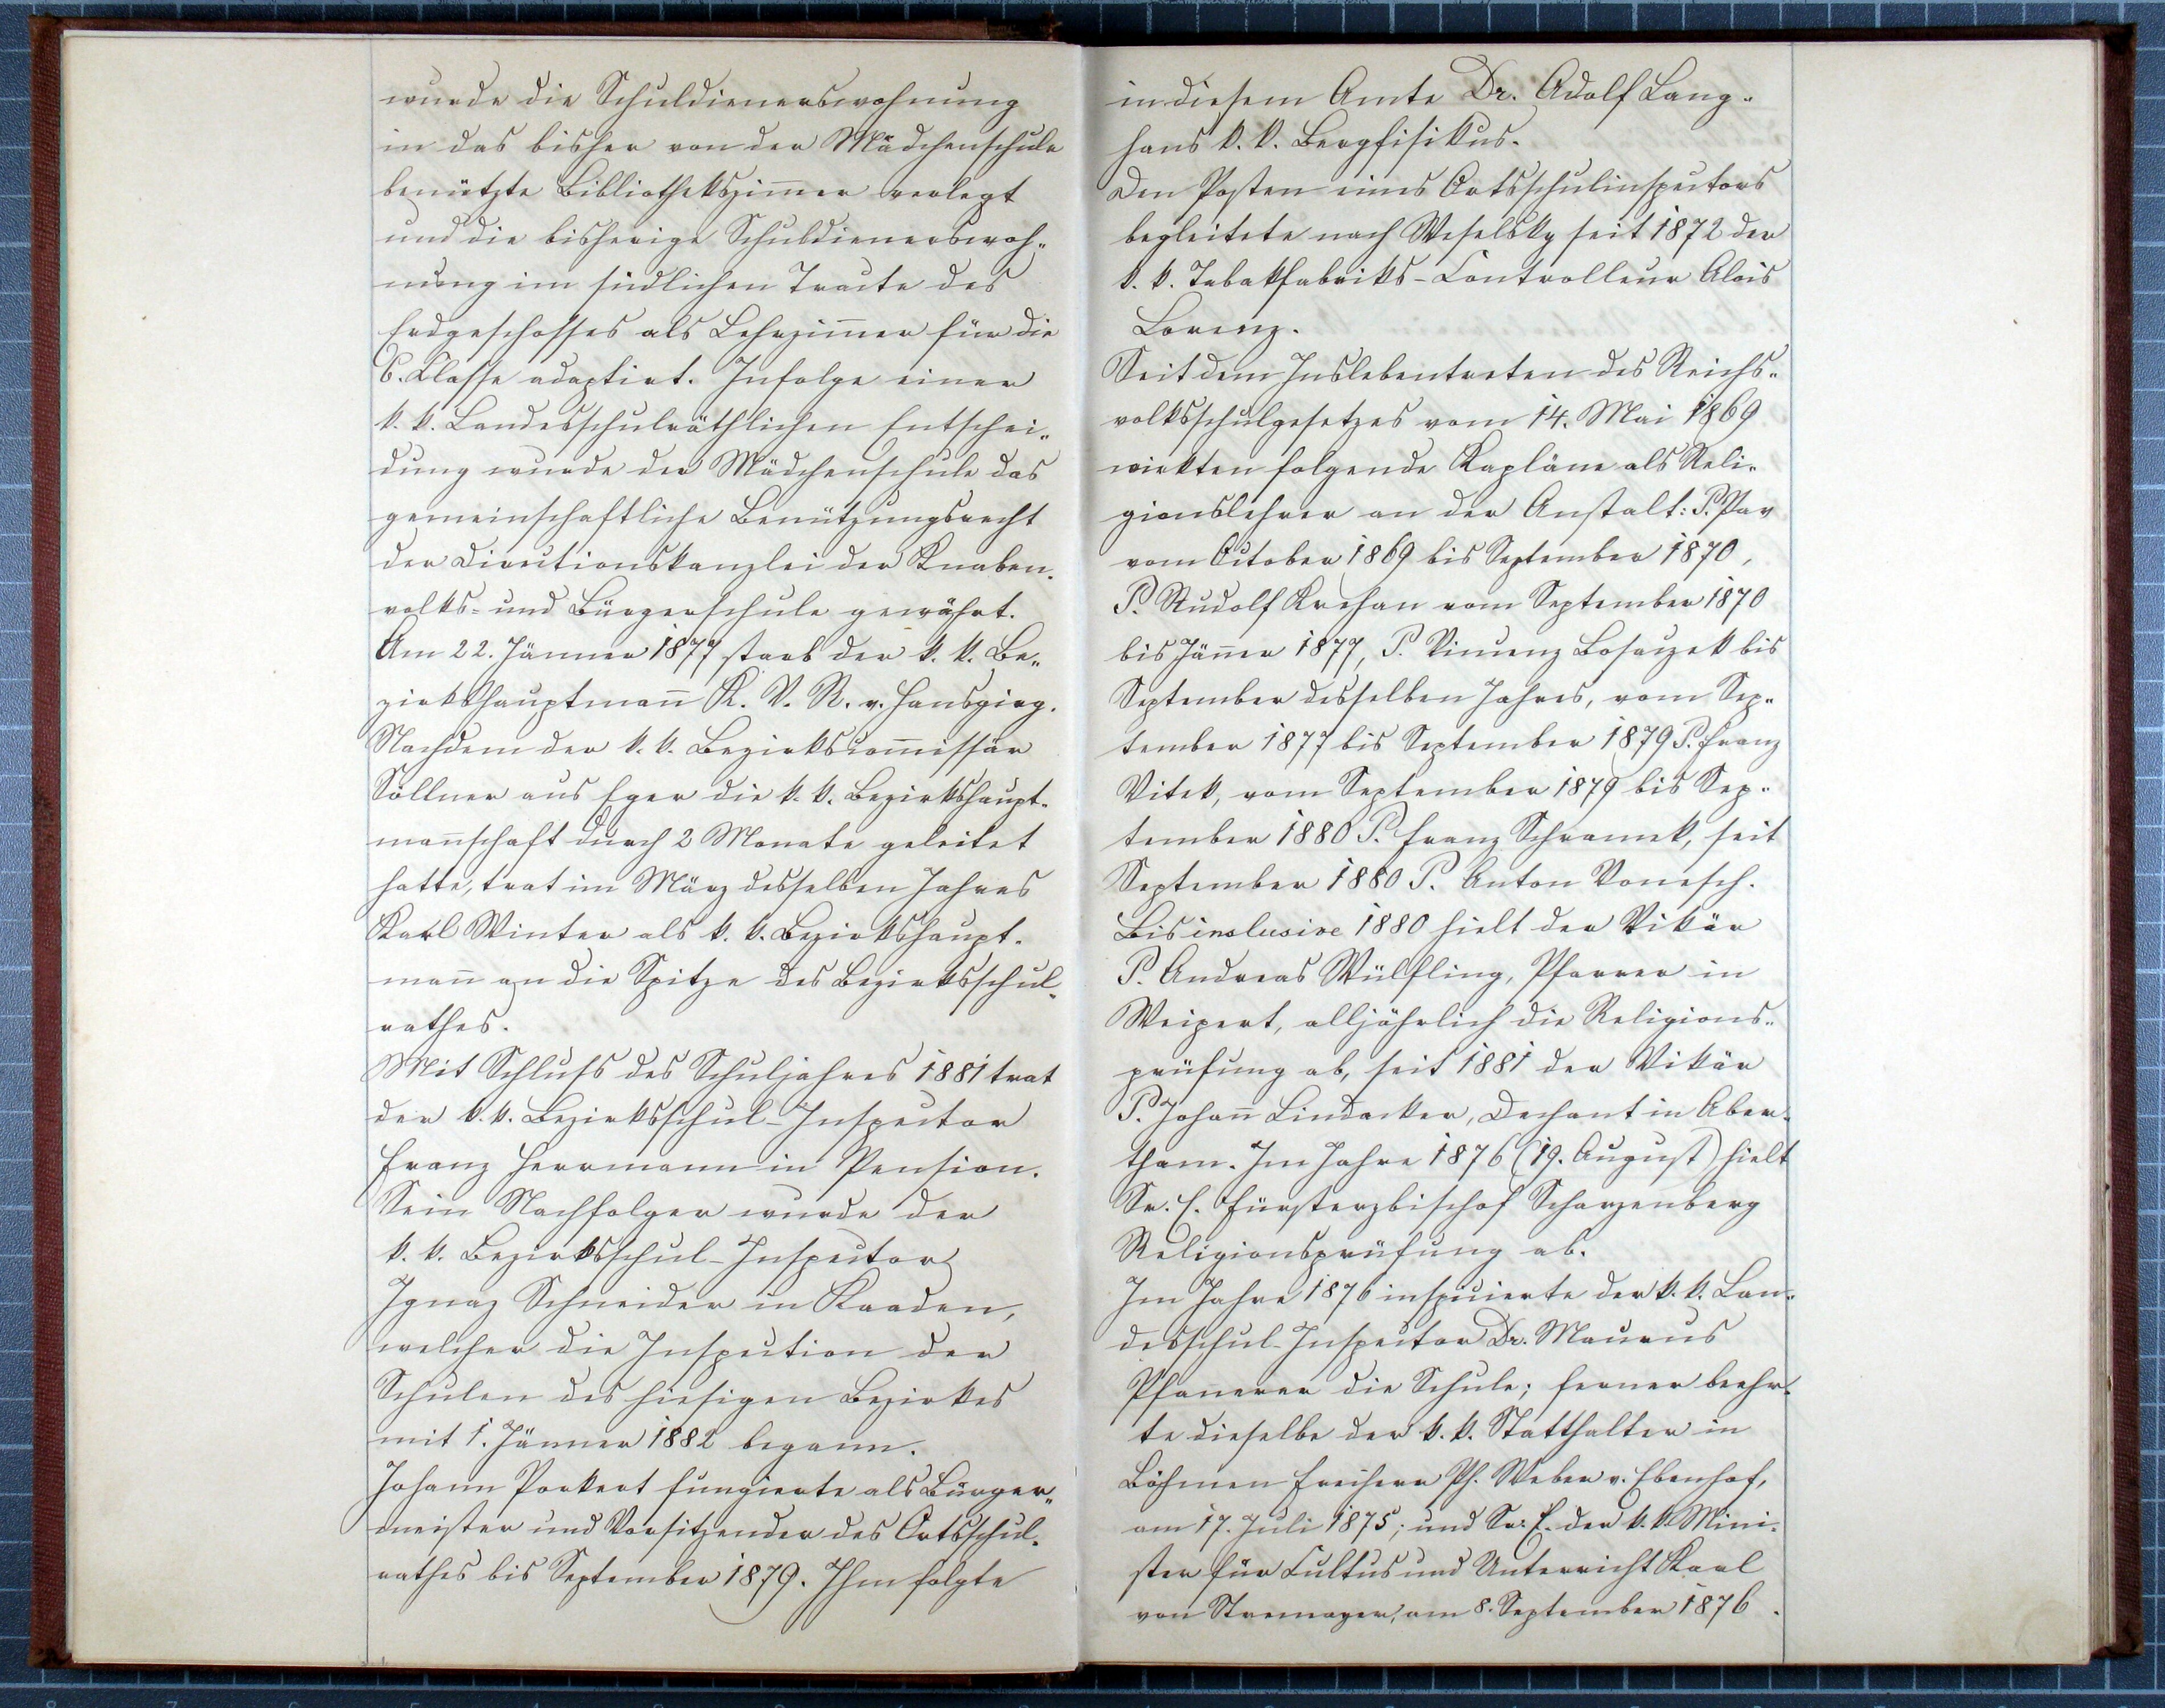 wurde die Schuldienerswohnung
in das bisher von der Mädchenschule
benützte Bibliothekszim̄er verlegt
und die bisherige Schuldienerswoh„
nung im südlichen Tracte des
Erdgeschosses als Lehrzim̄er für die
6. Classe adaptirt. Infolge einer
k. k. Landesschulräthlichen Entschei„
dung wurde der Mädchenschule das
gemeinschaftliche Benützungsrecht
der Directionskanzlei der Knaben-
volks- und Bürgerschule gewährt.
Am 22. Jänner 1877 starb der k. k. Be„
zirkshauptman̄ K. V. R. v. Hansgirg.
Nachdem der k. k. Bezirkscom̄issär
Söllner aus Eger die k. k. Bezirkshaupt-
man̄schaft durch 2 Monate geleitet
hatte, trat im März desselben Jahres
Karl Winter als k. k. Bezirkshaupt-
man̄ an die Spitze des Bezirksschul-
rathes.
Mit Schluß des Schuljahres 1881 trat
der k. k. Bezirksschul-Inspector
Franz Herrmann in Pension.
Sein Nachfolger wurde der
k. k. Bezirksschul-Inspector
Ignaz Schneider in Kaaden,
welcher die Inspection der
Schulen des hiesigen Bezirkes
mit 1. Jänner 1882 begann.
Johann Porkert fungierte als Bürger„
meister und Vorsitzender des Ortsschul-
rathes bis September 1879. Ihm folgte
in diesem Amte Dr. Adolf Lang-
hans k. k. Bergfisikus.
Den Posten eines Ortsschulinspectors
begleitete nach Weselsky seit 1872 der
k. k. Tabakfabriks-Controlleur Alois
Lorenz.
Seit dem Inslebentreten des Reichs„
volksschulgesetzes vom 14. Mai 1869
wirkten folgende Kapläne als Reli-
gionslehrer an der Anstalt: P. Pav
vom October 1869 bis September 1870,
P. Rudolf Krehan vom September 1870
bis Jän̄er 1877, P. Vincenz Bosaczek bis
September desselben Jahres, vom Sep„
tember 1877 bis September 1879 P. Franz
Vitek, vom September 1879 bis Sep-
tember 1880 P. Franz Schramek, seit
September 1880 P. Anton Vonesch.
Bis inclusive 1880 hielt der Vikär
P. Andreas Wülfling, Pfarrer in
Weipert, alljährlich die Religions„
prüfung ab, seit 1881 der Vikär
P. Johan̄ Lindacker, Dechant in Aber-
tham. Im Jahre 1876 (19. August) hielt
Sr. E. Fürsterzbischof Scharzenberg
Religionsprüfung ab.
Im Jahre 1876 inspicierte der k. k. Lan„
desschul-Inspector Dr. Maurus
Pfannerer die Schule; ferner beehr-
te dieselbe der k. k. Statthalter in
Böhmen Freiherr Ph. Weber v. Ebenhof,
am 17. Juli 1875; und Sr. E. der k. k. Mini-
ster für Cultus und Unterricht Karl
von Stremayer, am 8. September 1876.